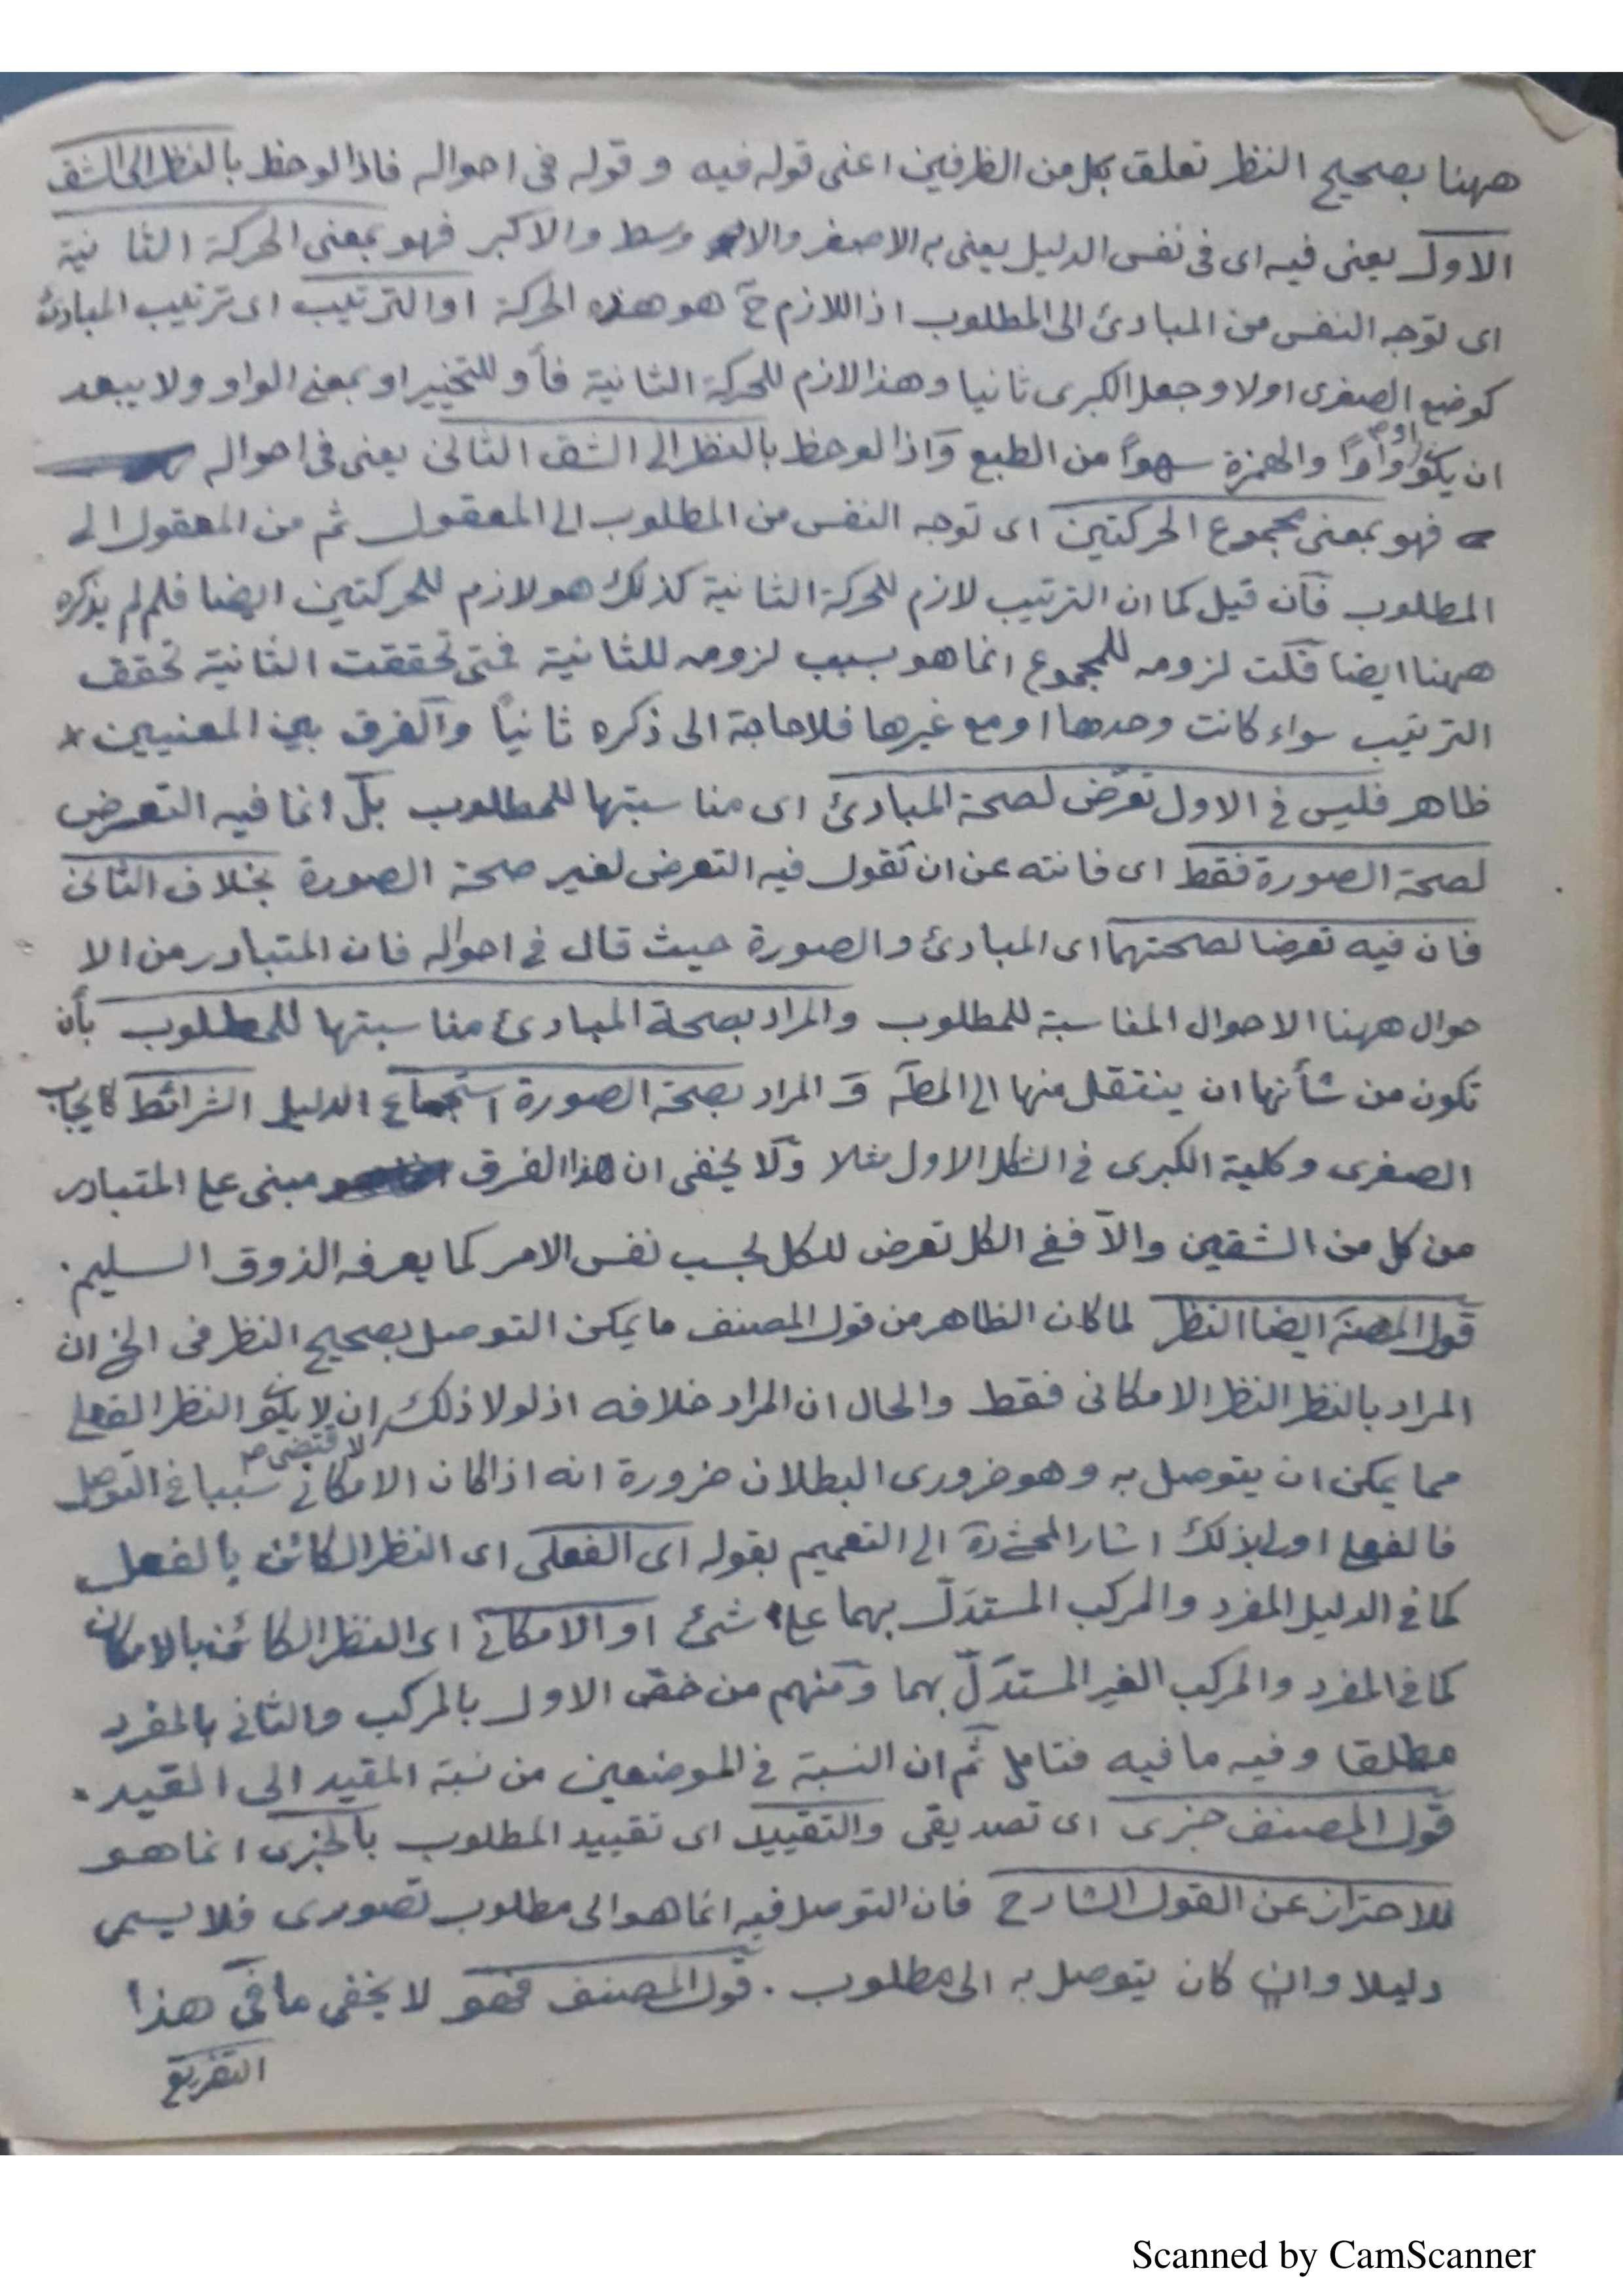 ههنا بصحيح النظر تعلق بكل من الظرفين اعنى قوله فيه وقوله فى احواله فاذا لوحظ بالنظر الى الشق
الاول يعنى فيه اى فى نفس الدليل يعنى به الاصغر والاوسط والاكبر فهو بمعنى الحركة الثانية
اى توجه النفس من المبادئ الى المطلوب اذ اللازم ح هو هذه الحركة او الترتيب اى ترتيب المبادئ
كوضع الصغرى اولا وجعل الكبرى ثانيا وهذا لازم للحركة الثانية فأو للتخيير او بمعنى الواو ولا يبعد
ان يكون واوًا والهمزة سهوًا من الطبع واذا لوحظ بالنظر الى الشق الثانى يعنى فى احواله
فهو بمعنى مجموع الحركتين اى توجه النفس من المطلوب الى المعقول ثم من المعقول الى
المطلوب فان قيل كما ان الترتيب لازم للحركة الثانية كذلك هو لازم للحركتين ايضا فلم لم يذكره
ههنا ايضا قلت لزومه للمجموع انما هو بسبب لزومه للثانية فمتى تحققت الثانية تحقق
الترتيب سواء كانت وحدها او مع غيرها فلا حاجة الى ذكره ثانيًا والفرق بين المعنيين
ظاهر فليس فى الاول تعرّض لصحة المبادئ اى مناسبتها للمطلوب بل انما فيه التعرض
لصحة الصورة فقط اى فانته عن ان تقول فيه التعرض لغير صحة الصورة بخلاف الثانى
فان فيه تعرضا لصحتهما اى المبادئ والصورة حيث قال فى احواله فان المتبادر من الا
حوال ههنا الاحوال المناسبة للمطلوب والمراد بصحة المبادئ مناسبتها للمطلوب بأن
تكون من شأنها ان ينتقل منها الى المطـ والمراد بصحة الصورة استجماع الدليل الشرائط كايجاب
الصغرى وكلية الكبرى فى الشكل الاول مثلا ولا يخفى ان هذا الفرق مبنى على المتبادر
من كل من الشقين والا ففى الكل تعرض للكل بحسب نفس الامر كما يعرفه الذوق السليم.
قول المصنف ايضا النظر لما كان الظاهر من قول المصنف ما يمكن التوصل بصحيح النظر فى الخ ان
المراد بالنظر النظر الامكانى فقط والحال ان المراد خلافه اذ لولا ذلك لاقتضى ان لا يكون النظر الفعلى
مما يمكن ان يتوصل به وهو ضرورى البطلان ضرورة انه اذا كان الامكانى سببا فى التوصل
فالفعلى اولى لذلك اشار المحشى ره الى التعميم بقوله اى الفعلى اى النظر الكائن بالفعل
كما فى الدليل المفرد والمركب المستدل بهما على شئ او الامكانى اى النظر الكائن بالامكان
كما فى المفرد والمركب الغير المستدلّ بهما ومنهم من خصّ الاول بالمركب والثانى بالمفرد
مطلقا وفيه ما فيه فتامل ثم ان النسبة فى الموضعين من نسبة المقيد الى القيد.
قول المصنف خبرى اى تصديقى والتقييد اى تقييد المطلوب بالخبرى انما هو
للاحتراز عن القول الشارح فان التوصل فيه انما هو الى مطلوب تصورى فلا يسمى
دليلا وان كان يتوصل به الى مطلوب. قول المصنف فهو لا يخفى ما فى هذا
التفريع
Scanned by CamScanner